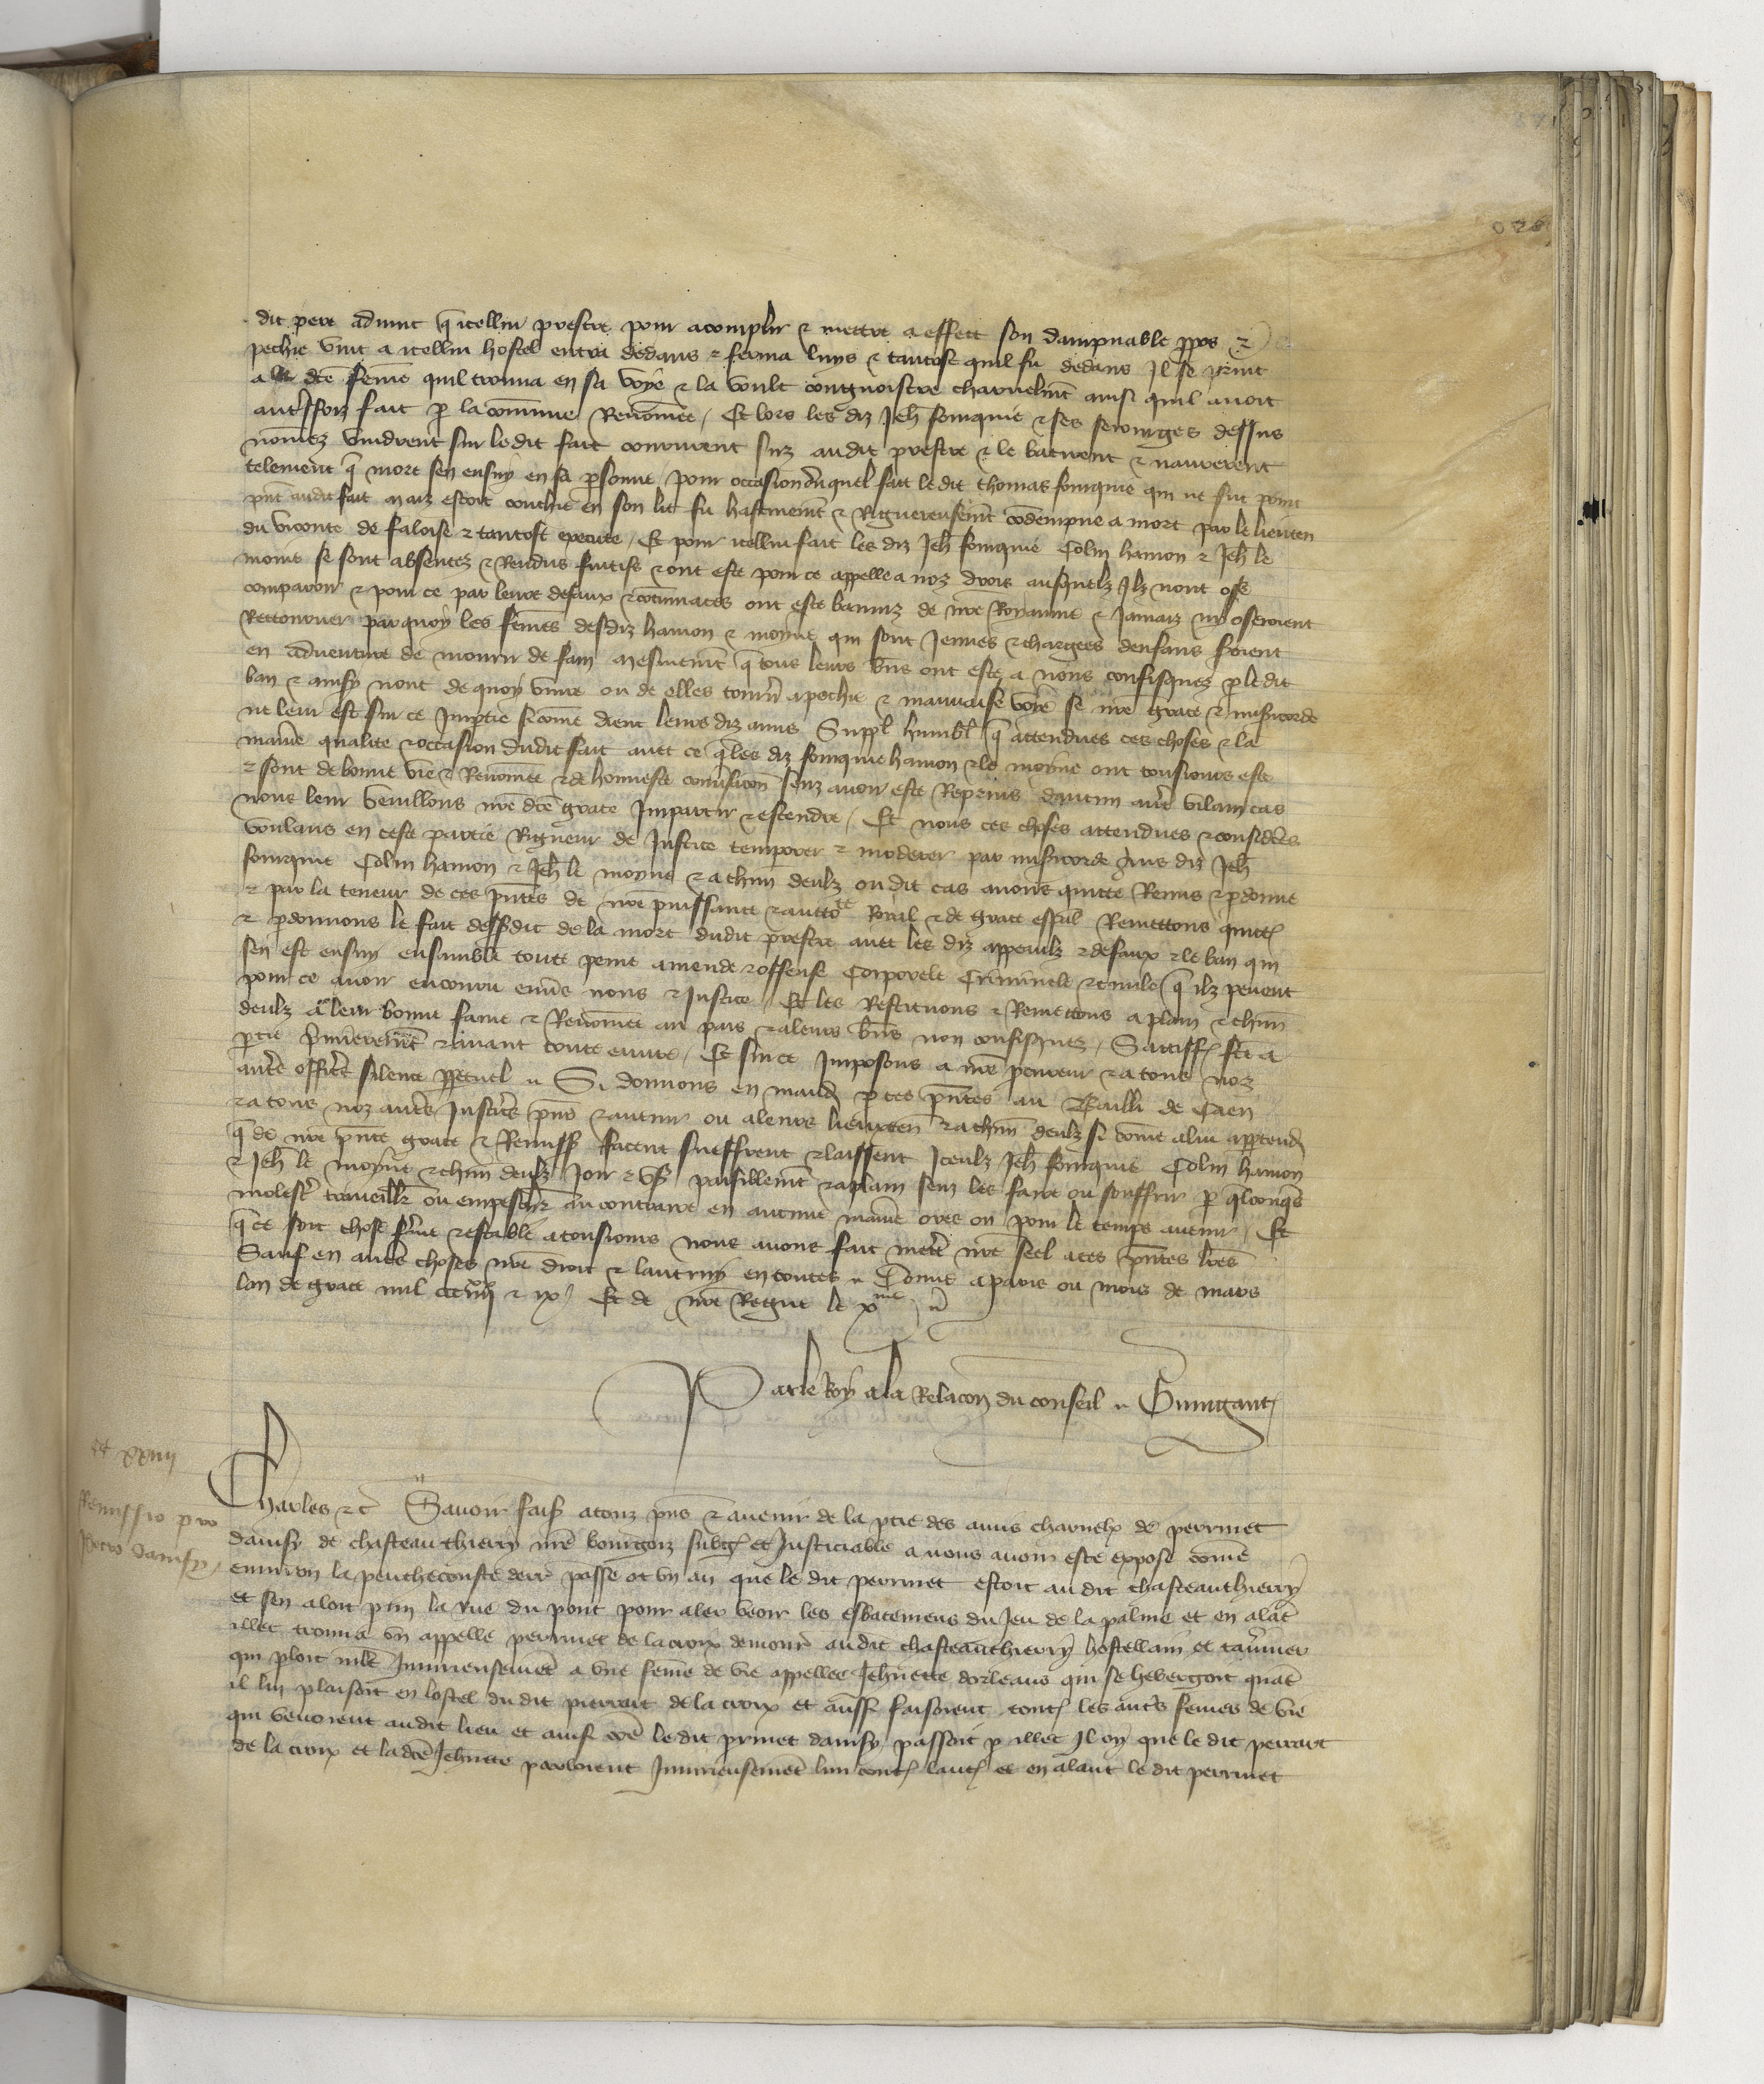 dit pere advint q̃ icellui prestre pour acomplir & mettre a effect son dampnable ppos &
pechie vint a icellui hostel entra dedans & ferma luys & tantost quil fu dedans Il se print
a la dcẽ fem̃e quil trouva en sa voye & la voult congnoistre charnelmt ainsi quil avoit
autresfoiz fait p la com̃une Renom̃ee / Et lors les diz Jeh̃ fouquie & ses serourges dessus
nom̃ez vindrent sur ledit fait coururent suz audit prestre & le batirent & navrerent
telement q̃ mort sen ensuy en sa psonne / pour occasion duquel fait le dit thomas fouquie qui ne fut point
pñt audit fait maiz estoit couchie en son lit fu hastivemt & Rigueureusemt cõdempne a mort par le lieuten
du viconte de faloise & tantost execute / Et pour icellui fait les diz Jeh̃ fouquie Colin hamon & Jeh̃ le
moine se sont absentez & Rendus fuitifs & ont este pour ce appelle a noz drois ausquelz Ilz nont ose
comparoir & pour ce par leurs defaux & cõtumaces ont este banniz de nre Royaume & Jamaiz ny oseroient
Rettourner parquoy les fem̃es desdiz hamon & moyne qui sont Jeunes & chargees denfans seroient
en adventure de mourir de fain mesmemt q̃ tous leurs bñs ont este a nous confisquez p le dit
ban & ainsy nont de quoy vivre ou de elles tourñ a pechie & mauvaise voye se nre grace & misicorde
ne leur est sur ce Imptie sicom̃e dient leurs diz amis Suppl humbl q̃ attendues ces choses & la
maniẽ qualite & occasion dudit fait avec ce q̃ les diz fouquie hamon & le moyne ont tousiours este
& sont de bonne vie & Renom̃ee & de honneste conv̾sacoñ senz avoir este Reprins daucun autre vilain cas
nous leur veuillons nre dcẽ grace Impartir & estendre / Et nous ces choses attendues & considẽes
voulans en ceste partie Rigueur de Justice temperer & moderer par misicorde aus diz Jeh̃
fouquie Colin hamon & Jeh̃ le moyne & a chũn deulz ou dit cas avons quitte Remis & pdonne
& par la teneur de ces pñtes de nre puissance & auctote Royal & de grace espal Remettons quitt
& pdonnons le fait dessusdit de la mort dudit prestre avec les diz appeaulz & defaux & le ban qui
sen est ensuy ensamble toute peine amende & offense Corporele Criminele & civile q̃ ilz pevent
pour ce avoir encouru env̾s nous & Justice / Et les Restituons & Remettons a plain & chũn
deulz a leur bonne fame & Renom̃ee au pais & a leurs bñs non confisquez / Satisff fcẽ a
ptie p̾mieremt & avant toute euvre / Et sur ce Imposons a nre procureur & a tous noz
autres officiers silence ppetuel ~ Si donnons en mand p ces pñtes au Bailli de Caen
& a tous noz autres Justiciers pñs & avenir ou a leurs lieuxten & a chũn deulz si com̃e a lui apptend
q̃ de nre pñte grace & Remiss facent sueffrent & laissent Iceulz Jeh̃ fouquie Colin hamon
& Jeh̃ le moyne & chũn deulz Joir & us̾ paisiblemt & a plain senz les faire ou souffrir p q̃lconq̃s
molest̾ traveillr ou empeschr au contraire en aucune maniẽ ores ou pour le temps avenir / Et
q̃ ce soit chose ferme & estable a tousiours nous avons fait mettre nre seel a ces pñtes lrẽs
Sauf en autres choses nre droit & lautruy en toutes ~ Donne a paris ou mois de mars
lan de grace mil ccc iiijxx & ix / Et de nre Regne le xme
Par le Roy a la Relacoñ du conseil ~ Guingant
et xxiiij
Remissio pro
petro Damsy
Charles &c Savoir fais̃ a touz pñs & avenir de la ptie des amis charnelx de perrinet
damsy de chasteauthierry nre bourgoiz subg et Justiciable a nous avoir este expose com̃e
environ la penthecouste derr̾ passe ot vn an que le dit perrinet estoit au dit chasteauthierry
et sen aloit p my la rue du pont pour aler veoir les esbatemens du Jeu de la palme et en alãt
illec trouva vn appelle perrinet de la croix demour̾ au dit chasteauthierry hostellain et tav̾nier
qui ploit mlt Injurieusemẽt a vne fem̃e de vie appellee Jehñette dorleans qui se hebergoit quãt
il lui plaisoit en lostel du dit pierrait de la croix et aussi faisoient tout les autres femes de vie
qui venoient au dit lieu et ainsi com̃e le dit prinet damsy passoit p illec Il oy que le dit perrait
de la croix et la dcẽ Jehñette parloient Injurieusemẽt lun cont laut et en alant le dit perrinet